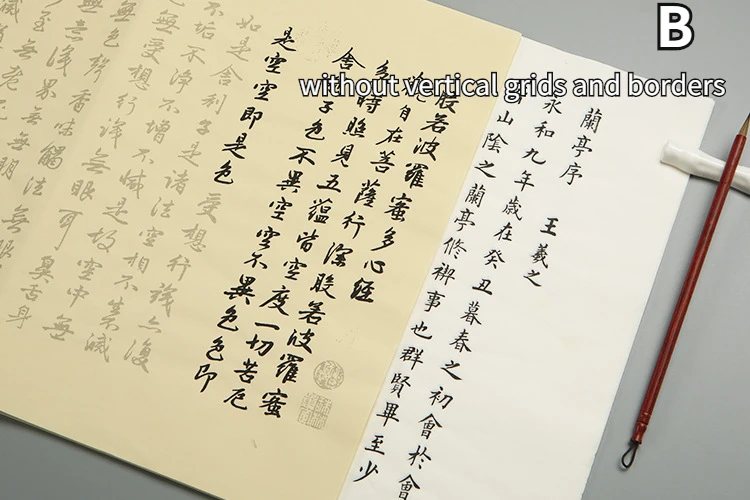 B
without vertical grids and borders
蘭亭序 王羲之
永和九年歲在癸丑暮春之初會於會
山陰之蘭亭脩稧事也群賢畢至少
般若波羅蜜多心經
自在菩薩行深般若波羅蜜
多時照見五蘊皆空度一切苦厄
舍子色不異空空不異色色即
是空空即是色
受想行識亦復
如是舍利子是諸法空相不生不滅
不垢不淨不增不減是故空中無
色無受想行識無眼耳鼻舌身
色聲香味觸法無眼